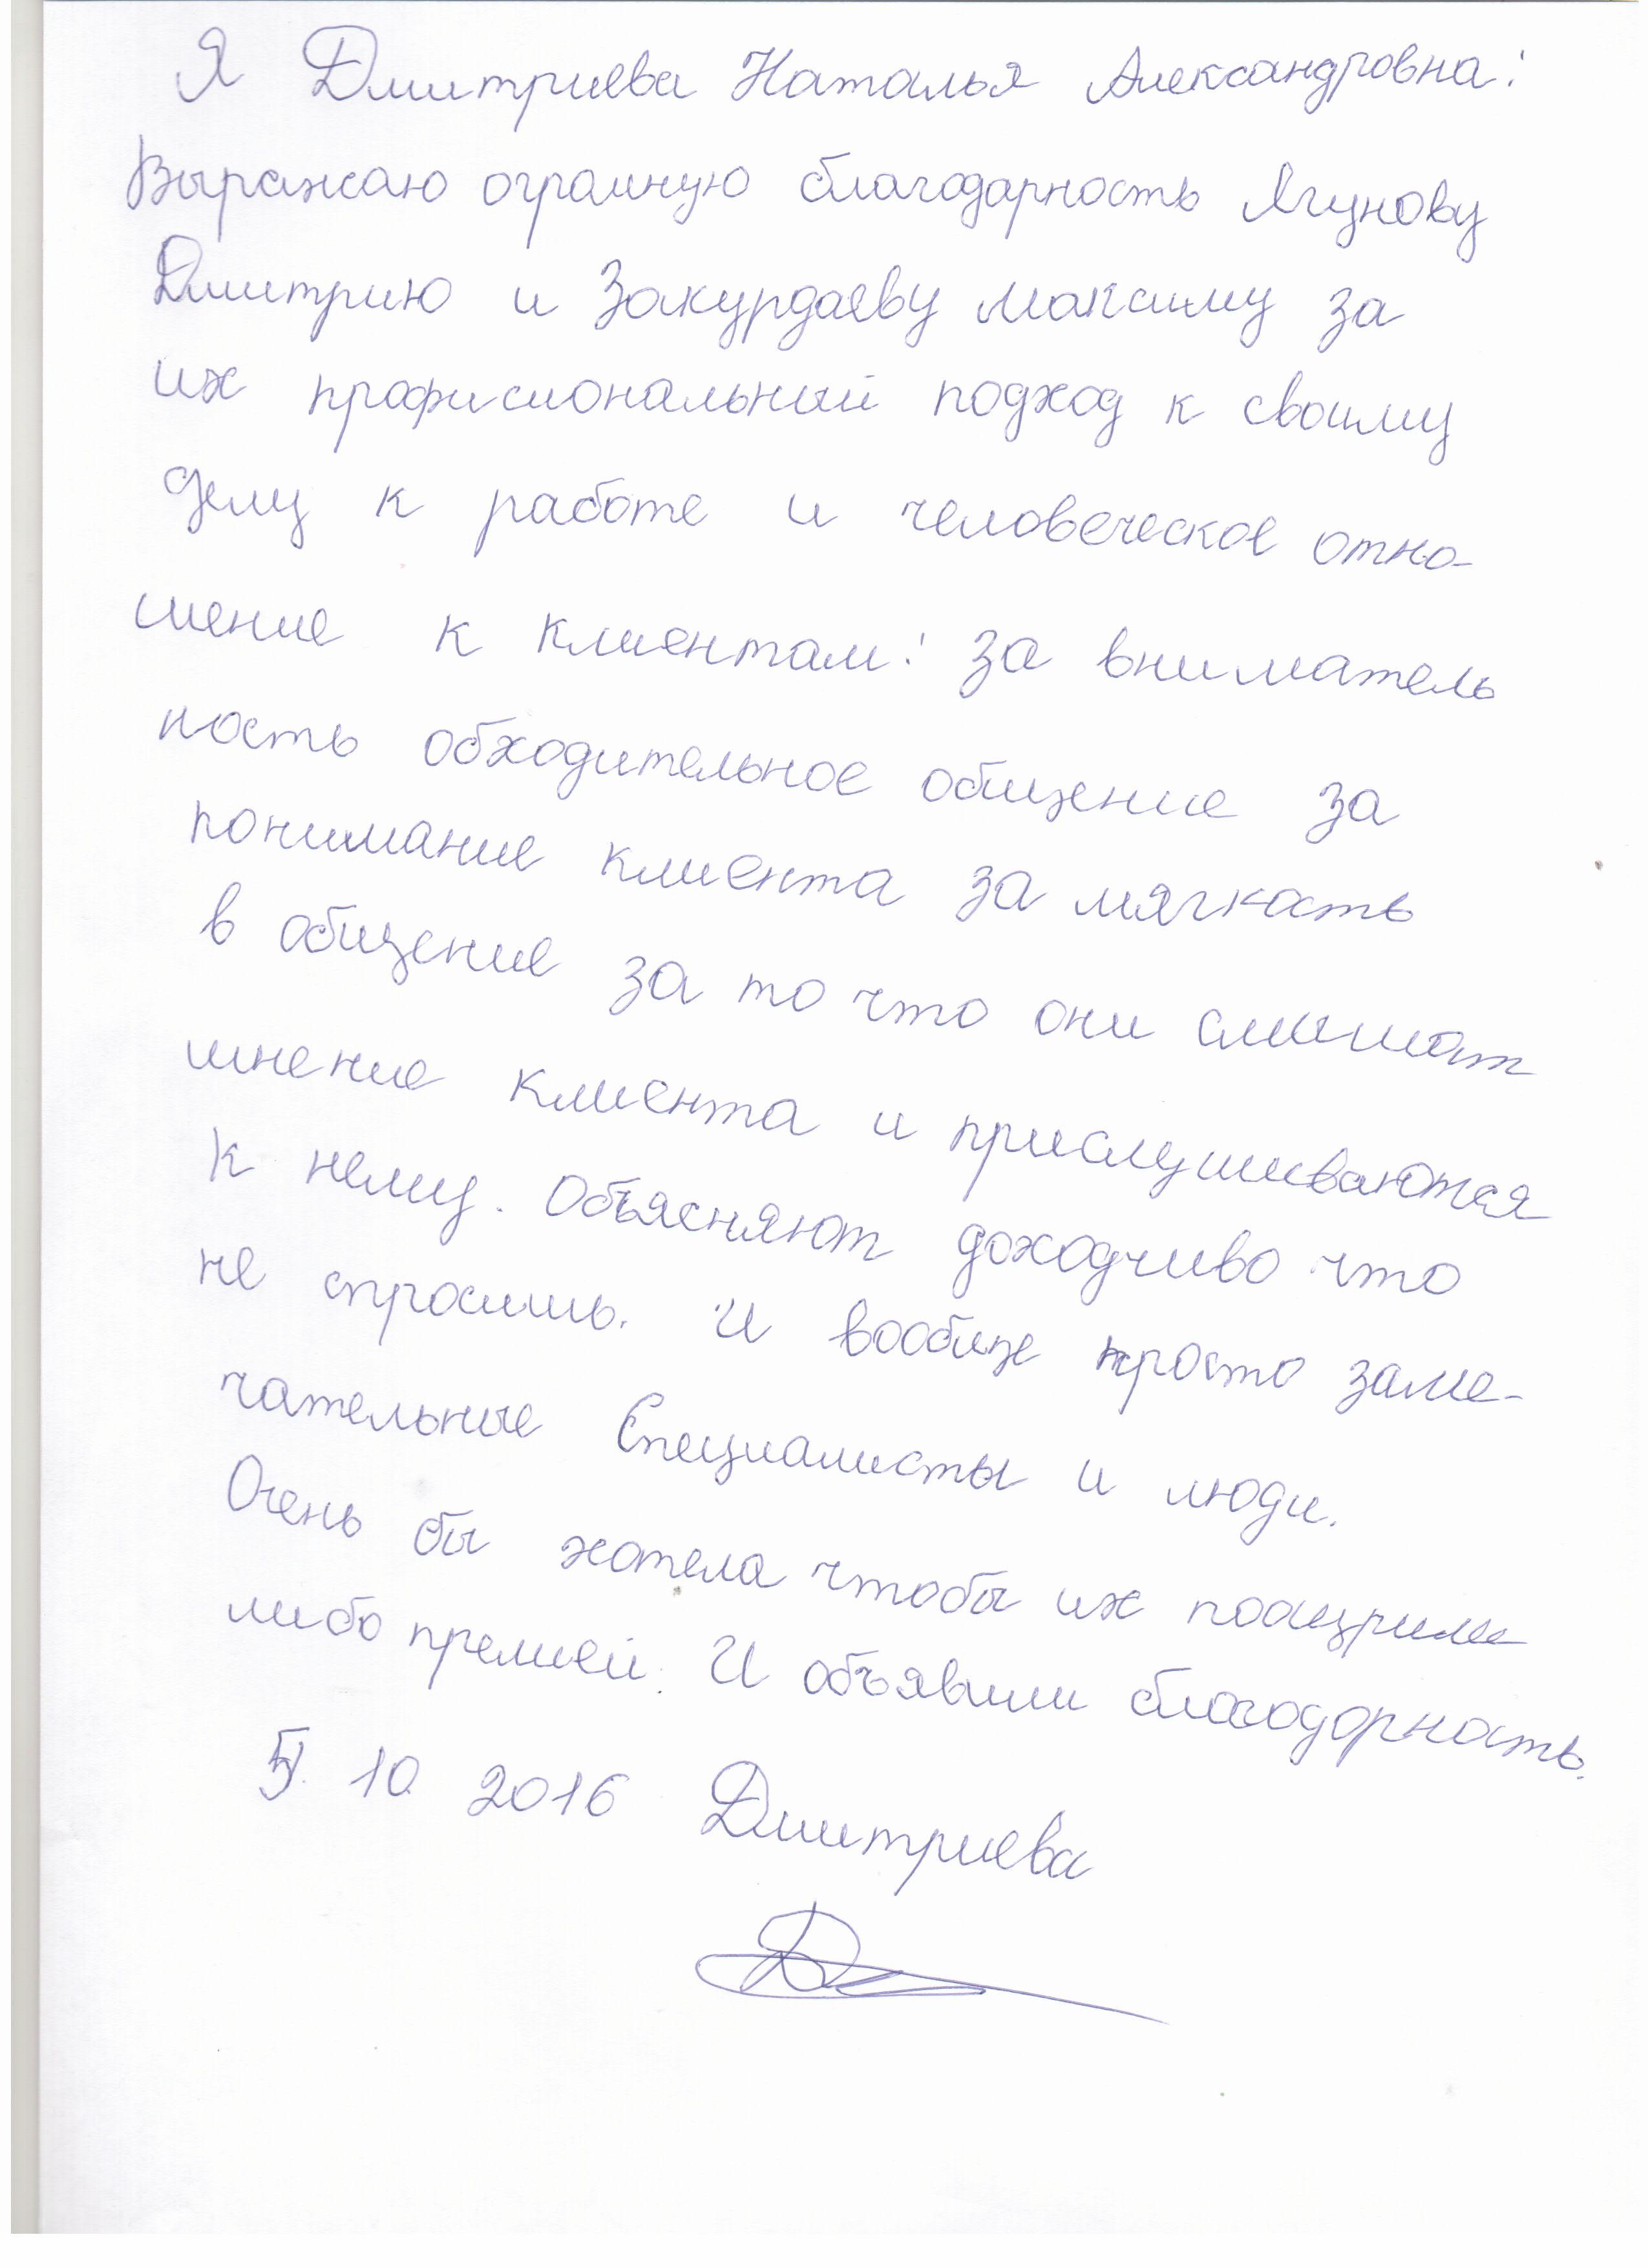 Я Дмитриева Наталья Александровна!
Выражаю огромную благодарность Ягунову
Дмитрию и Закурдаеву Максиму за
их профисиональный подход к своиму
делу к работе и человеческое отно-
шение к клиентам! За вниматель
ность обходительное общение за
понимание клиента за мягкость
в общение за то что они слышат
мнение клиента и прислушиваются
к нему. Объясняют доходчиво что
не спросишь. И вообще просто заме-
чательные Специалисты и люди.
Очень бы хотела чтобы их поощрили
либо премией. И объявили благодорность.
10 2016 Дмитриева